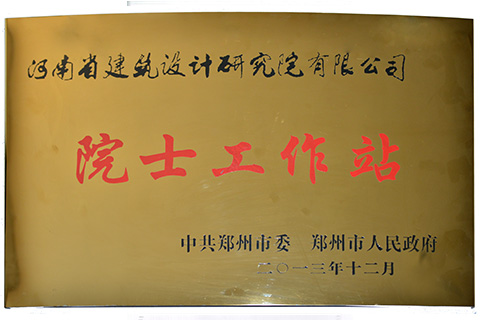 河南省建筑设计研究院有限公司
院士工作站
中共郑州市委 郑州市人民政府
二〇一三年十二月